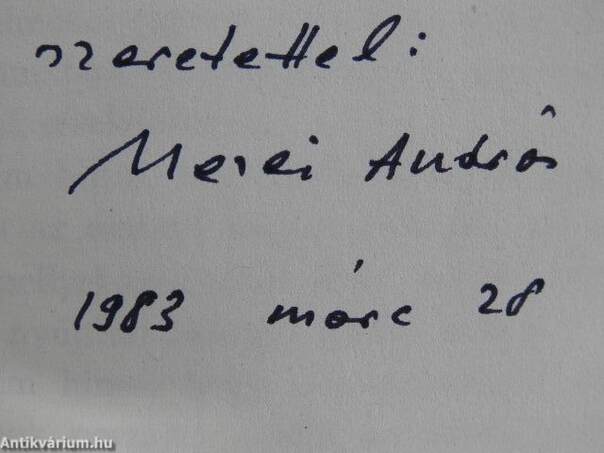 szeretettel:
Mezei András
1983 márc 28
Antikvárium.hu